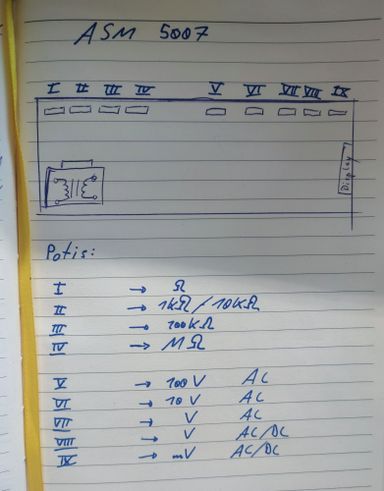 ASM 5007
I II III IV V VI VII VIII IX
Display
Potis:
I → Ω
II → 1kΩ/10kΩ
III → 100kΩ
IV → MΩ
V → 100V AC
VI → 10V AC
VII → V AC
VIII → V AC/DC
IX → mV AC/DC